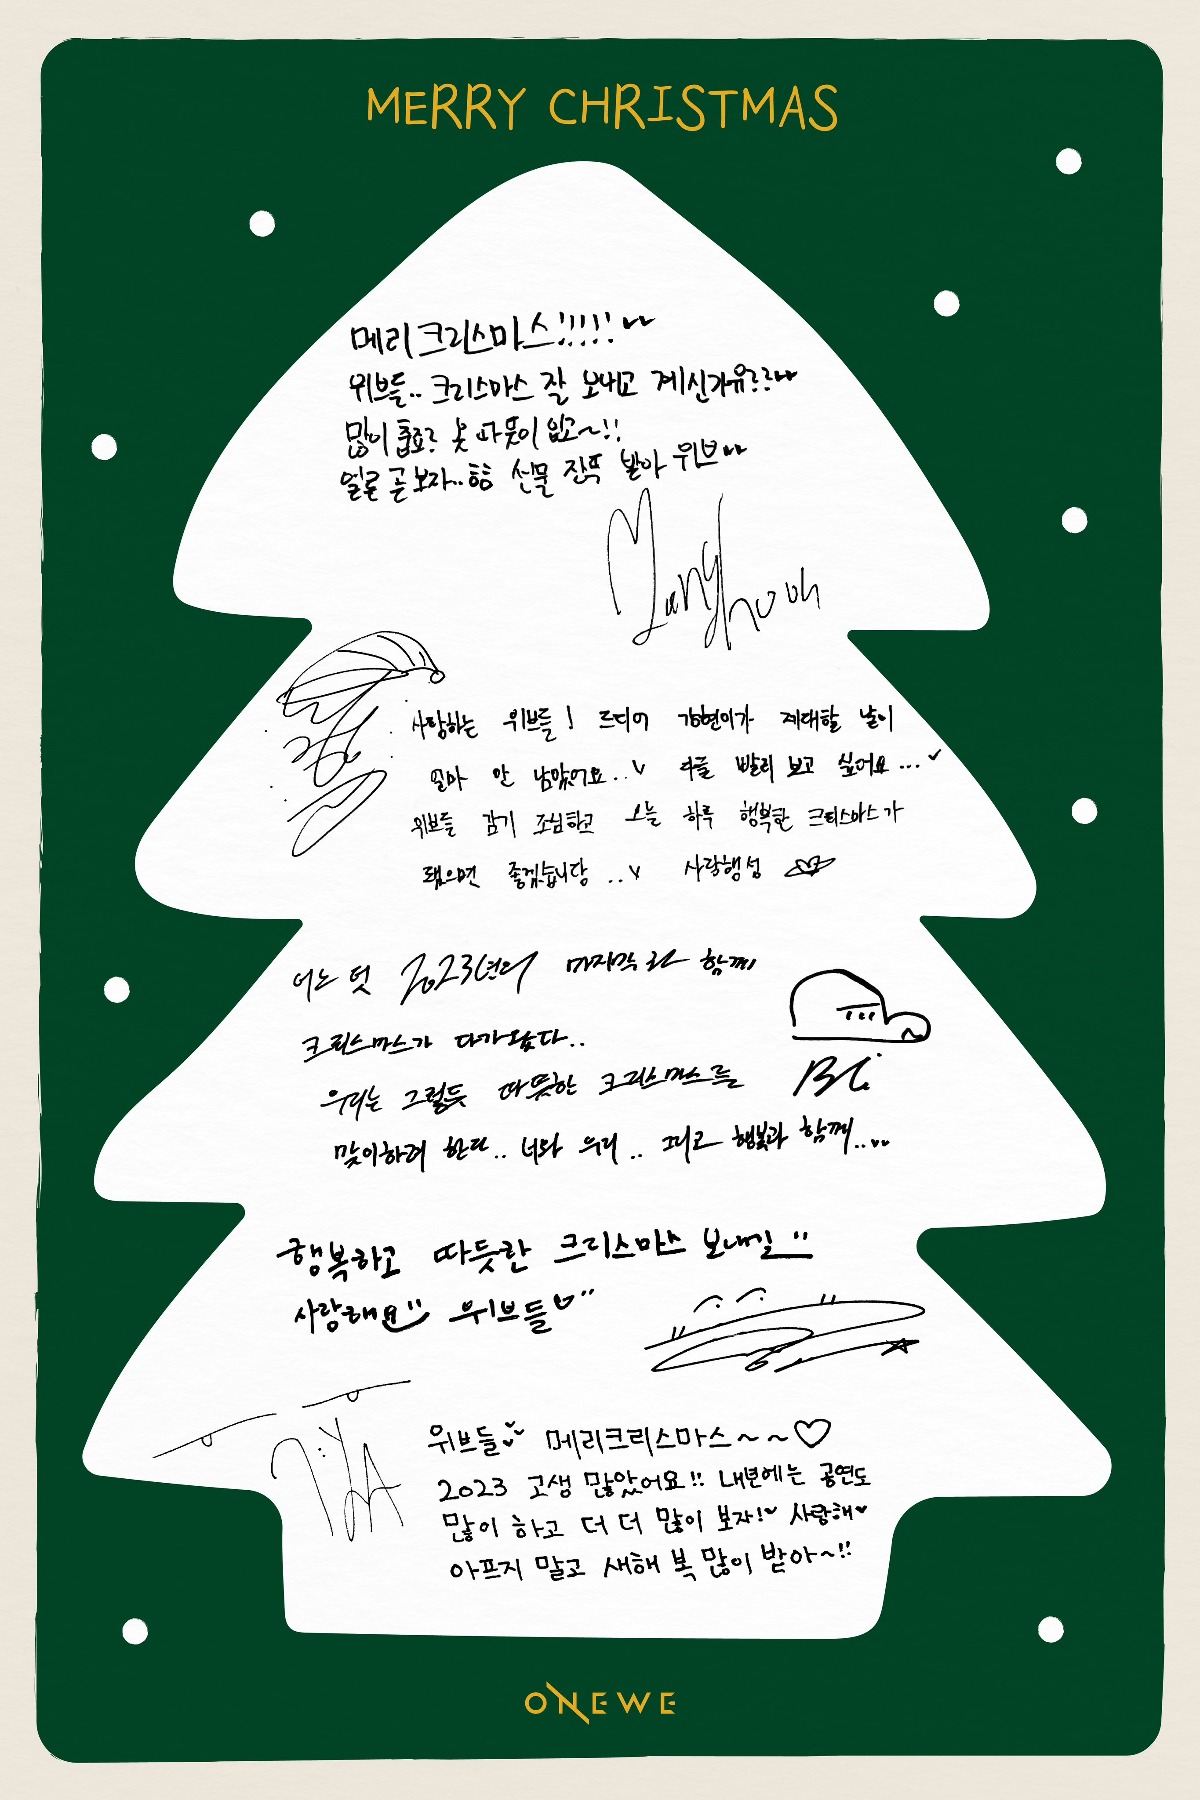 MERRY CHRISTMAS
메리크리스마스!!!!!
위브들.. 크리스마스 잘 보내고 계신가유??
많이 춥죠? 옷 따뜻이 입고~!!
얼른 곧 보자.. 선물 잔뜩 받아 위브
사랑하는 위브들! 드디어 강현이가 제대할 날이
얼마 안 남았어요.. 다들 빨리 보고 싶어요...
위브들 감기 조심하고 오늘 하루 행복한 크리스마스가
됐으면 좋겠습니다.. 사랑행성
어느덧 2023년의 마지막과 함께
크리스마스가 다가왔다..
우리는 그렇듯 따뜻한 크리스마스를
맞이하려 한다.. 너와 우리.. 그리고 행복과 함께..
CyA
행복하고 따듯한 크리스마스 보내길
사랑해요 위브들
위브들 메리크리스마스~~♡
2023 고생 많았어요!! 내년에는 공연도
많이 하고 더 더 많이 보자! 사랑해
아프지 말고 새해 복 많이 받아~!!
ONEWE